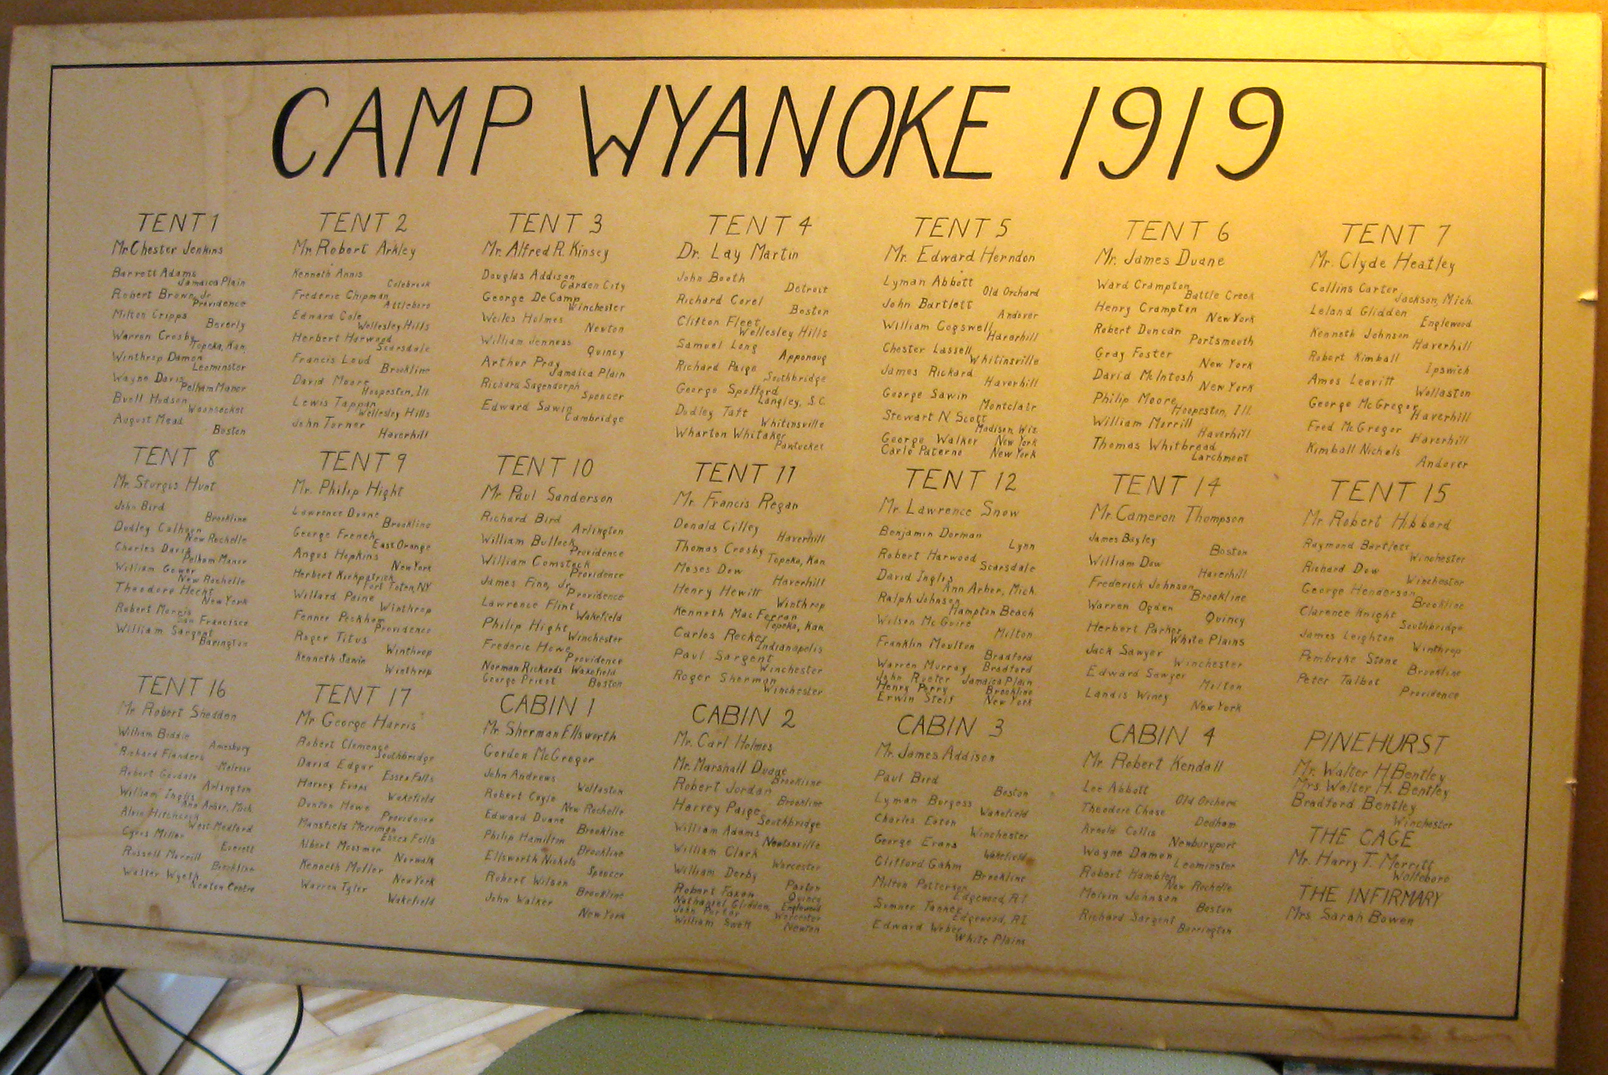 CAMP WYANOKE 1919
TENT 1
Mr Chester Jenkins
Barrett Adams
Jamaica Plain
Robert Brown, Jr.
Providence
Milton Cripps
Beverly
Warren Crosby
Topeka, Kan.
Winthrop Damon
Leominster
Wayne Davis
Pelham Manor
Buell Hudson
Woonsocket
August Mead
Boston
TENT 2
Mr. Robert Arkley
Kenneth Annis
Colebrook
Frederic Chipman
Attleboro
Edward Cole
Wellesley Hills
Herbert Harwood
Scarsdale
Francis Loud
Brookline
David Moore
Hoopeston, Ill.
Lewis Tappan
Wellesley Hills
John Turner
Haverhill
TENT 3
Mr. Alfred R. Kinsey
Douglas Addison
Garden City
George DeCamp
Winchester
Welles Holmes
Newton
William Jenness
Quincy
Arthur Pray
Jamaica Plain
Richard Sagendorph
Spencer
Edward Sawin
Cambridge
TENT 4
Dr. Lay Martin
John Booth
Detroit
Richard Corel
Boston
Clifton Fleet
Wellesley Hills
Samuel Long
Apponaug
Richard Paige
Southbridge
George Spofford
Langley, S.C.
Dudley Taft
Whitinsville
Wharton Whitaker
Pawtucket
TENT 5
Mr. Edward Herndon
Lyman Abbott
Old Orchard
John Bartlett
Andover
William Cogswell
Haverhill
Chester Lassell
Whitinsville
James Rickard
Haverhill
George Sawin
Montclair
Stewart N Scott
Madison, Wis.
George Walker New York
Carlo Paterno New York
TENT 6
Mr. James Duane
Ward Crampton
Battle Creek
Henry Crampton
New York
Robert Duncan
Portsmouth
Gray Foster
New York
David McIntosh
New York
Philip Moore
Hoopeston, Ill.
William Morrill
Haverhill
Thomas Whitbread
Larchmont
TENT 7
Mr. Clyde Heatley
Collins Carter
Jackson, Mich.
Leland Glidden
Englewood
Kenneth Johnson
Haverhill
Robert Kimball
Ipswich
Amos Leavitt
Wollaston
George McGregor
Haverhill
Fred McGregor
Haverhill
Kimball Nichols
Andover
TENT 8
Mr. Sturgis Hunt
John Bird
Brookline
Dudley Calhoun
New Rochelle
Charles Davis
Pelham Manor
William Gower
New Rochelle
Theodore Hecht
New York
Robert Morris
San Francisco
William Sargent
Barington
TENT 9
Mr. Philip Hight
Lawrence Duane
Brookline
George French
East Orange
Angus Hopkins
New York
Herbert Kirkpatrick
Fort Toten, NY
Willard Paine
Winthrop
Fenner Peckham
Providence
Roger Titus
Winthrop
Kenneth
Winthrop
TENT 10
Mr. Paul Sanderson
Richard Bird
Arlington
William Bullock
Providence
William Comstock
Providence
James Fine, Jr.
Providence
Lawrence Flint
Wakefield
Philip Hight
Winchester
Frederic Howe
Providence
Norman Rickards Wakefield
George Priest Boston
TENT 11
Mr. Francis Regan
Donald Cilley
Haverhill
Thomas Crosby
Topeka, Kan
Moses Dow
Haverhill
Henry Hewitt
Winthrop
Kenneth MacFerran
Topeka, Kan.
Carlos Recker
Indianapolis
Paul Sargent
Winchester
Roger Sherman
Winchester
TENT 12
Mr. Lawrence Snow
Benjamin Dorman
Lynn
Robert Harwood
Scarsdale
David Inglis
Ann Arbor, Mich.
Ralph Johnson
Hampton Beach
Wilson McGuire
Milton
Franklin Moulton
Bradford
Warren Murray Bradford
John Rooter Jamaica Plain
Henry Perry Brookline
Erwin Steif New York
TENT 14
Mr. Cameron Thompson
James Bayley
Boston
William Dow
Haverhill
Frederick Johnson
Brookline
Warren Ogden
Quincy
Herbert Parker
White Plains
Jack Sawyer
Winchester
Edward Sawyer
Milton
Landis Winey
New York
TENT 15
Mr. Robert Hibbard
Raymond Bartlett
Winchester
Richard Dow
Winchester
George Henderson
Brookline
Clarence Knight
Southbridge
James Leighton
Winthrop
Pembroke Stone
Brookline
Peter Talbot
Providence
TENT 16
Mr Robert Sheddon
William Biddle
Amesbury
Richard Flanders
Melrose
Robert
Arlington
William Inglis
Ann Arbor, Mich
Alvin Hitchcock
West Medford
Cyrus Miller
Everett
Russell Morrill
Brookline
Walter Wyeth
Newton Centre
TENT 17
Mr. George Harris
Robert Clemence
Southbridge
David Edgar
Essex Falls
Harvey Evans
Wakefield
Denton Howe
Providence
Mansfield Merriman
Essex Fells
Albert Mosmer
Norwalk
Kenneth Moller
New York
Warren Tyler
Wakefield
CABIN 1
Mr. Sherman Ellsworth
Gordon McGregor
John Andrews
Wollaston
Robert Coyle
New Rochelle
Edward Duane
Brookline
Philip Hamilton
Brookline
Ellsworth Nichols
Spencer
Robert Wilson
Brookline
John Walker
New York
CABIN 2
Mr. Carl Holmes
Mr. Marshall Duane
Brookline
Robert Jordan
Brookline
Harvey Paige
Southbridge
William Adams
Newtonville
William Clark
Worcester
William Derby
Paxton
Robert Faxon Quincy
Nathaniel Glidden Englewood
John Parker Worcester
William Swett Newton
CABIN 3
Mr. James Addison
Paul Bird
Boston
Lyman Burgess
Wakefield
Charles Eaton
Winchester
George Evans
Wakefield
Clifford Gahm
Brookline
Milton Patterson
Edgewood, R.I.
Sumner Tanner
Edgewood, R.I.
Edward Weber
White Plains
CABIN 4
Mr. Robert Kendall
Lee Abbott
Old Orchard
Theodore Chase
Dedham
Arnold Collis
Newburyport
Wayne Damon
Leominster
Robert Hamblen
New Rochelle
Melvin Johnson
Boston
Richard Sargent
Barrington
PINEHURST
Mr. Walter H Bentley
Mrs Walter H. Bentley
Bradford Bentley
Winchester
THE CAGE
Mr. Harry T. Merritt
Wolfeboro
THE INFIRMARY
Mrs Sarah Bowen